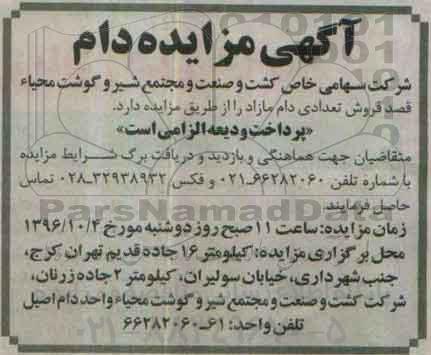 آگهی مزایده دام
شرکت سهامی خاص کشت و صنعت و مجتمع شیر و گوشت محیاء
قصد فروش تعدادی دام مازاد را از طریق مزایده دارد.
«پرداخت ودیعه الزامی است»
متقاضیان جهت هماهنگی و بازدید و دریافت برگ شرایط مزایده
با شماره تلفن ۶۶۲۸۲۰۶۰-۰۲۱ و فکس ۳۲۹۳۸۹۳۲-۰۲۸ تماس
حاصل فرمایند
زمان مزایده: ساعت ۱۱ صبح روز دوشنبه مورخ ۱۳۹۶/۱۰/۴
محل برگزاری مزایده: کیلومتر ۱۶ جاده قدیم تهران کرج،
جنب شهرداری، خیابان سولیران، کیلومتر ۲ جاده زرنان،
شرکت کشت و صنعت و مجتمع شیر و گوشت محیاء واحد دام اصیل
تلفن واحد: ۶۱-۶۶۲۸۲۰۶۰
ParsNamadData